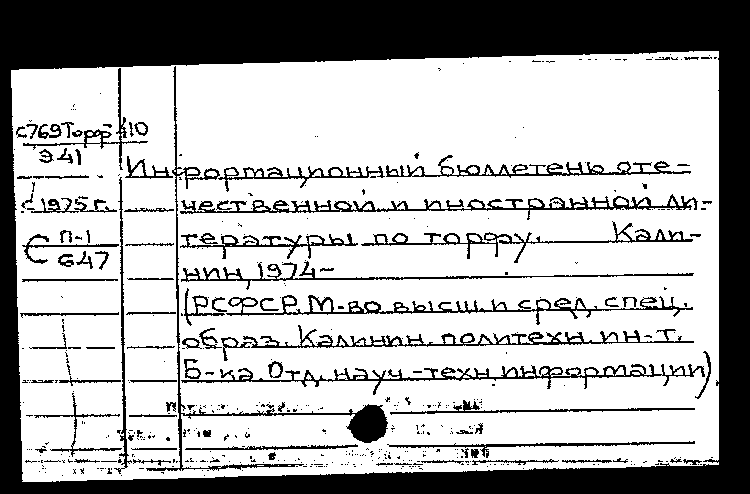 с769 Торф 410
941
Информационный бюллетень оте-
с 1975 г.
чественной и иностранной ли-
С П-1
647
тературы по торфу. Кали-
нин, 1974-
(РСФСР. М-во высш. и сред. спец.
образ. Калинин. политехн. ин-т.
Б-ка. Отд. науч.-техн. информации).